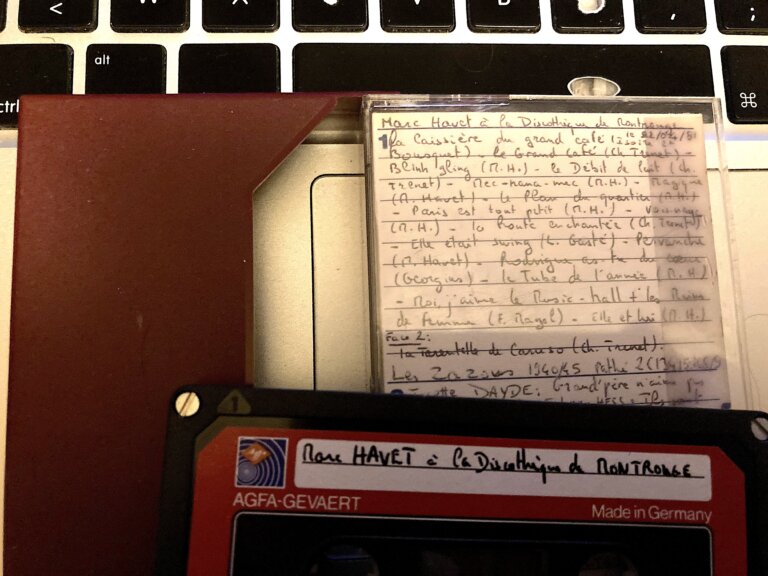 alt
ctrl
Marc Havet à la Discothèque de Montrouge
1 La Caissière du grand café (L.
Bousquet) - Le Grand Café (Ch. Trenet) -
Bling gling (M.H.) - Le Débit de lait (Ch.
Trenet) - Mec-hana-mec (M.H.) -
(M. Havet) - Le Plan du quartier (M.H.)
- Paris est tout petit (M.H.) -
(M.H.) - La Route enchantée (Ch. Trenet)
- Elle était swing (L. Gasté) - Pervenche
(M. Havet) - Rodrigue as-tu du coeur
(Georgius) - Le Tube de l'année (M.H.)
- Moi, j'aime le Music-hall + les Ruines
de femme (F. Mayol) - Elle et lui (M.H.)
Face 2:
La Tarentelle de Caruso (Ch. Trenet).
Les Zazous 1940/45 Pathé
DAYDÉ: Grand'père n'aime pas
1
Marc HAVET à la Discothèque de MONTROUGE
AGFA-GEVAERT
Made in Germany